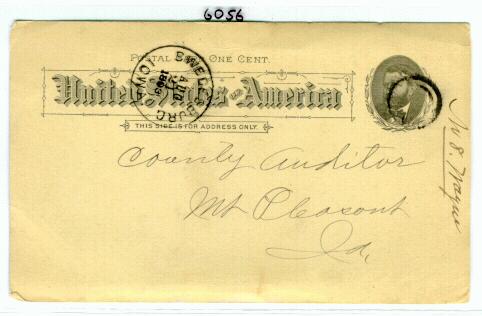 6056
POSTAL CARD ONE CENT.
United States of America
THIS SIDE IS FOR ADDRESS ONLY.
SWEDESBURG IOWA
AUG
1893
County Auditor
Mt Pleasant
Ia,
Wayne